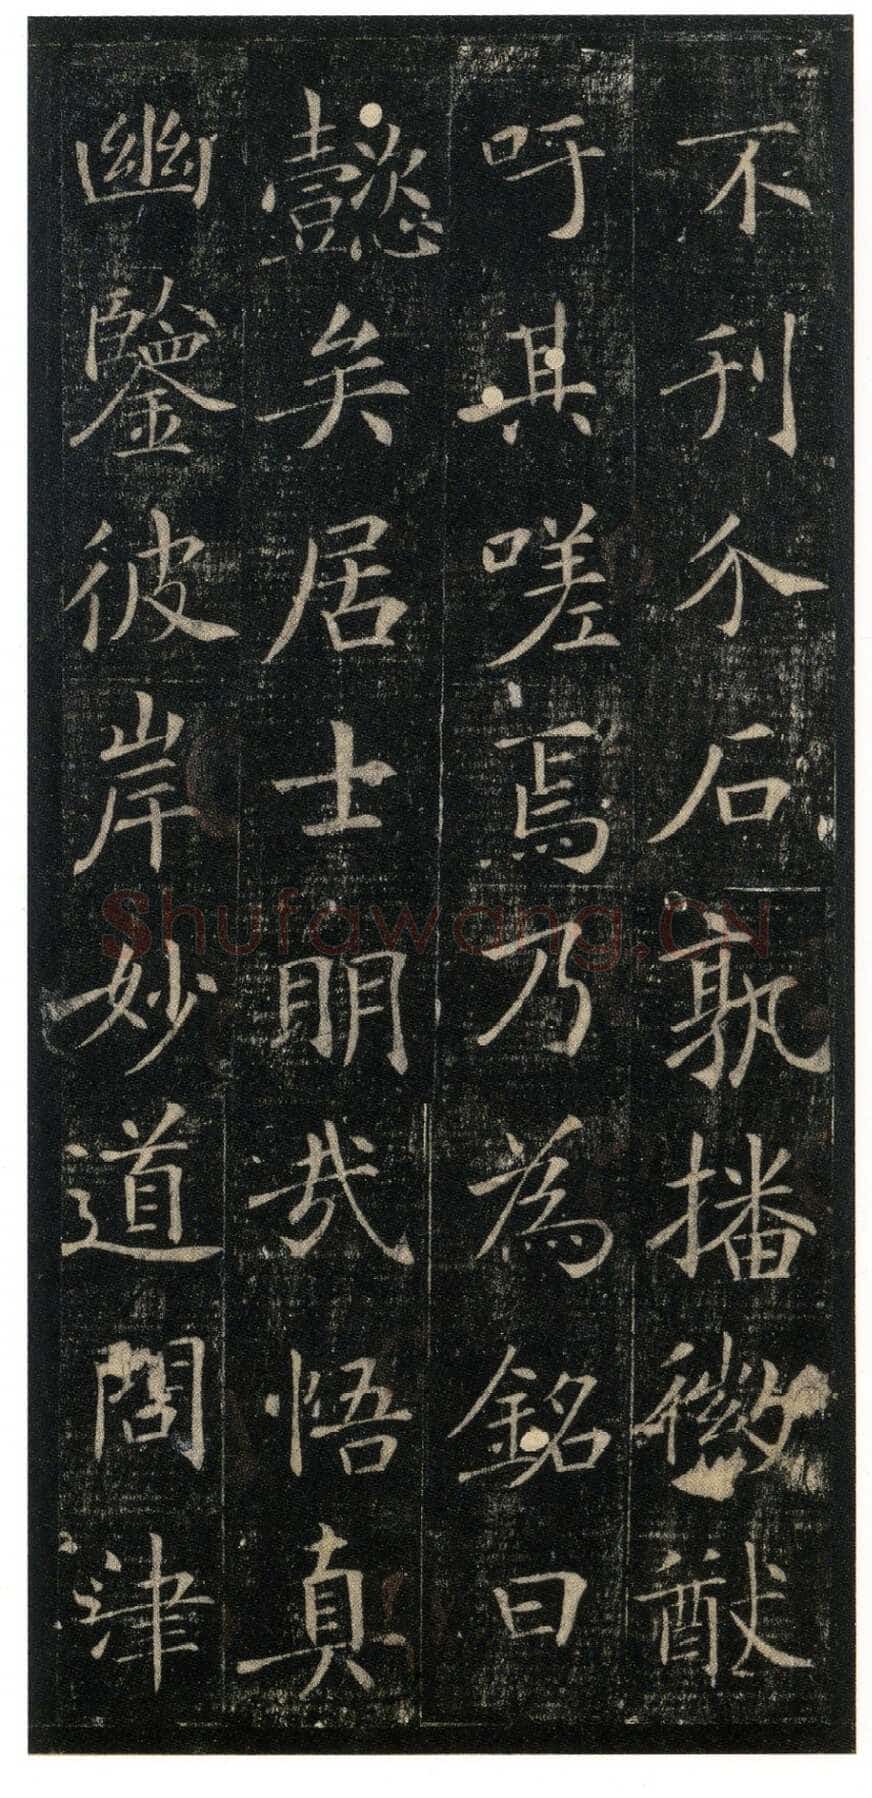 不刋介石孰播徽猷
吁其嗟焉乃為銘曰
懿矣居士明哉悟真
幽鑒彼岸妙道問津
Shufawang.CN